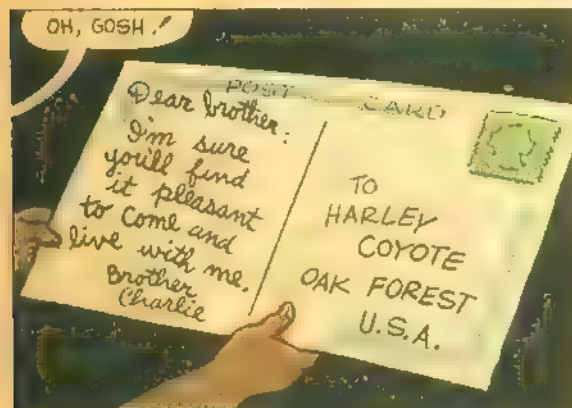 OH, GOSH!
POST CARD
Dear brother:
I'm sure
you'll find
it pleasant
to come and
live with me.
Brother
Charlie
TO
HARLEY
COYOTE
OAK FOREST
U.S.A.